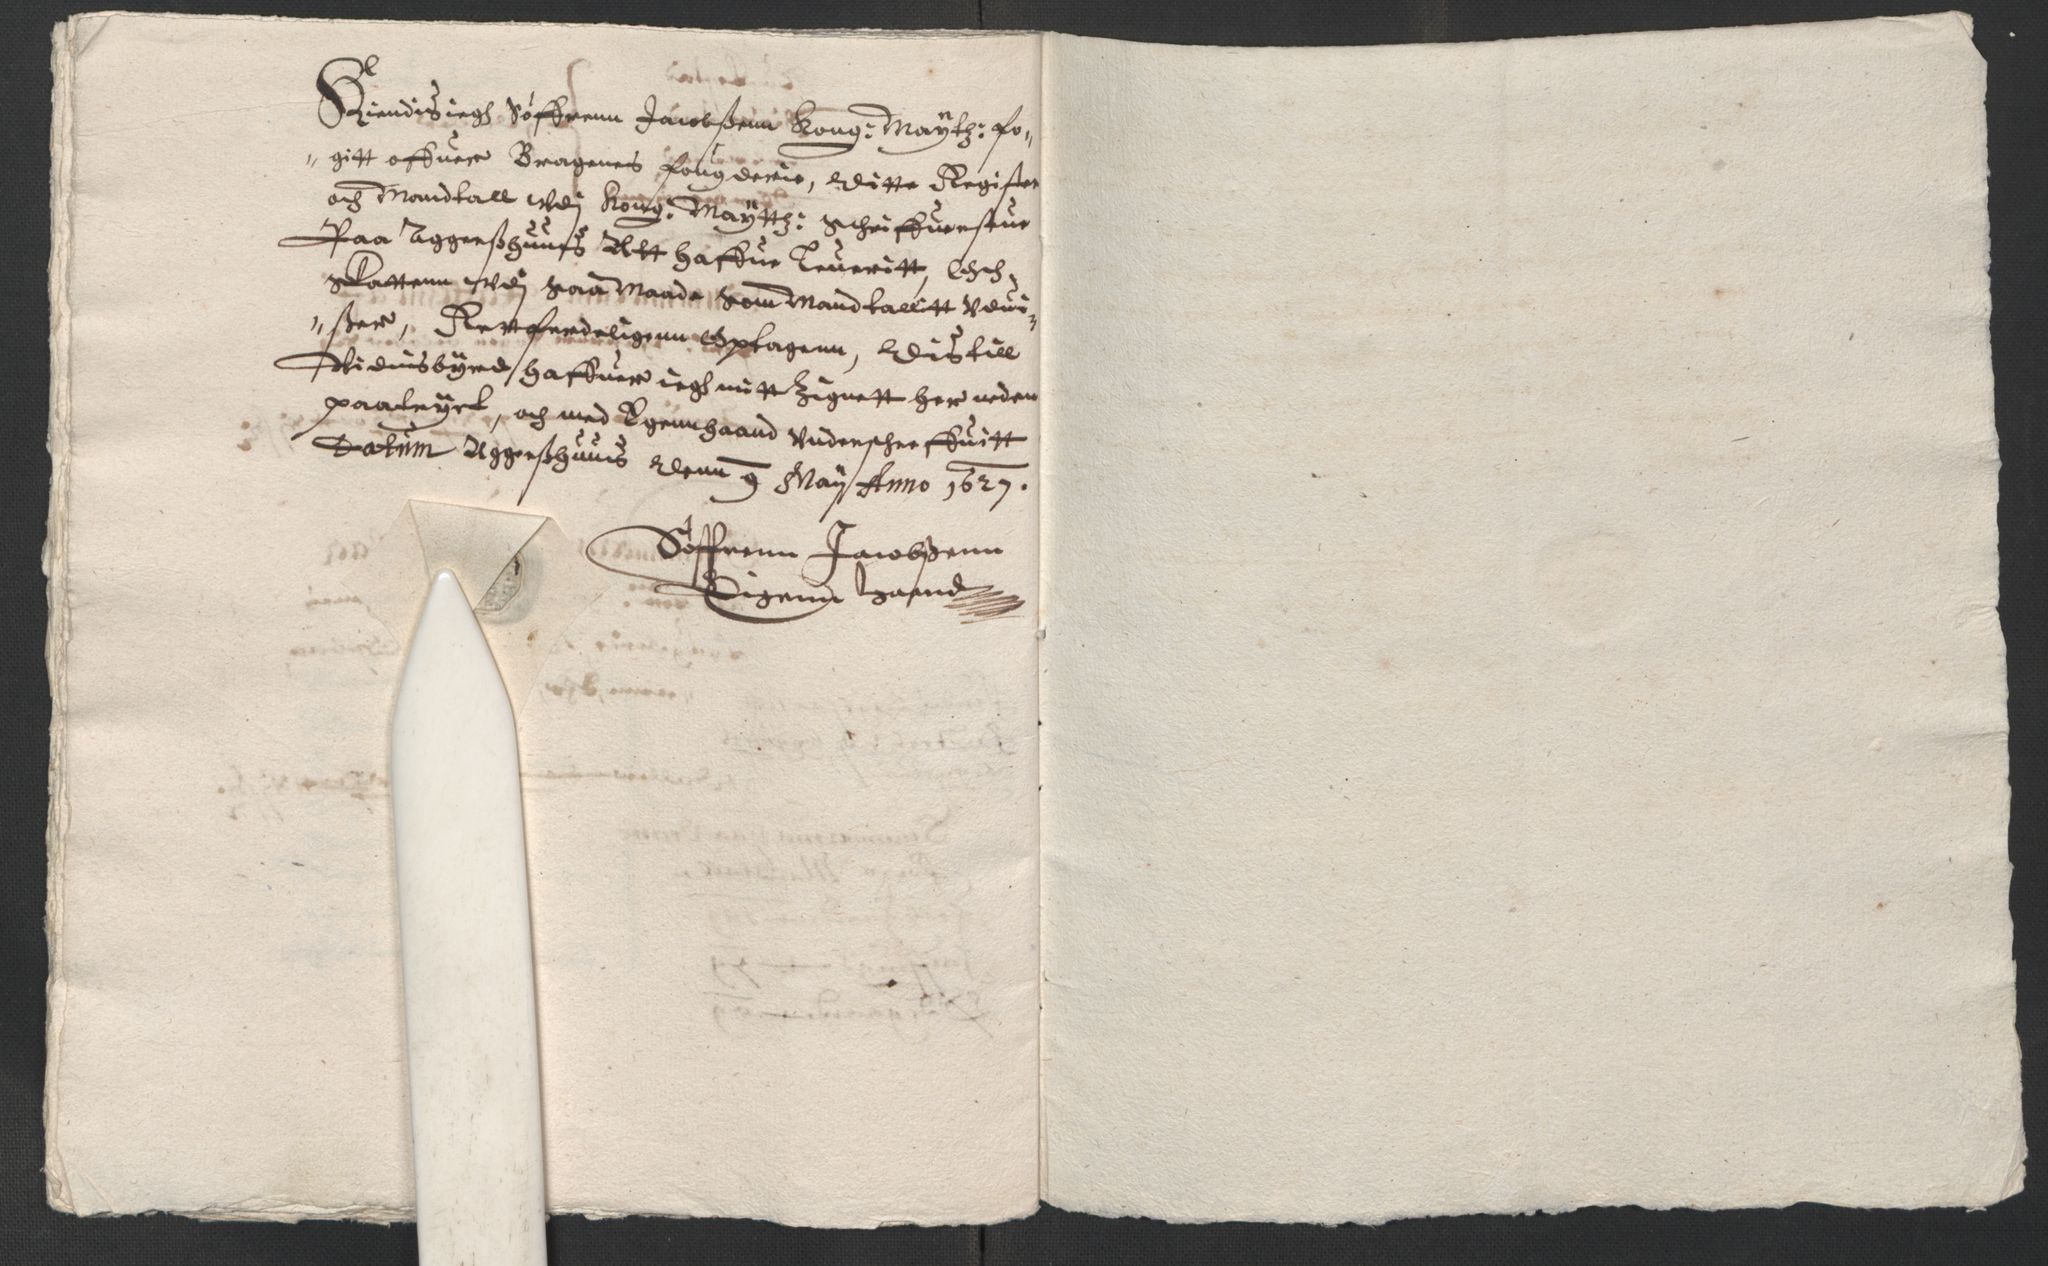 Kiendis iegh Søffrenn Jacobßenn Kong: Maÿtz: fo=
=gitt offuer Bragenes fougderie, Ditte Register
och Mandtall Vdj Kong: Maÿttz: Schriffuerstue
Paa Aggerßhuus Att haffue Leueritt, Och
Skattenn Vdj saa Maade som Mandtallitt Vdui=
=ßer, Retferdeligenn Optagenn, Dis till
Vidnisbyrd haffuer iegh mitt Zignett her neden
paa tryct, och med Egennhaand Vnderschreffuitt
Datum Aggerßhuus Denn 9 Maÿ Anno 1627.
Søffrenn Jacobßenn
Eigenn haand